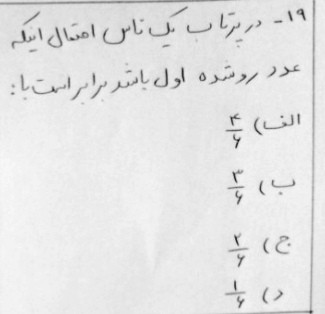 ۱۹- در پرتاب یک تاس احتمال اینکه
عدد رو شده اول باشد برابر است با:
الف) ۴/۶
ب) ۳/۶
ج) ۲/۶
د) ۱/۶